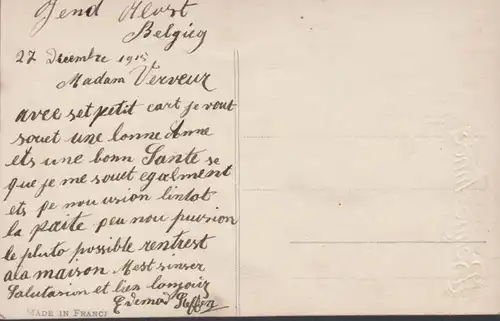 Jend Alost
Belgieg
27 Decembre 1915
Madam Verveur
avec set petit cart je vout
souet une bonne Anne
ets une bonn Sante se
que je me souet egalment
ets pe nou usion bintot
la paite peu nou puision
le pluto possible rentrest
a la maison Mest sinser
Salutasion et bien bonjoir
Edemod Steffen
MADE IN FRANCE